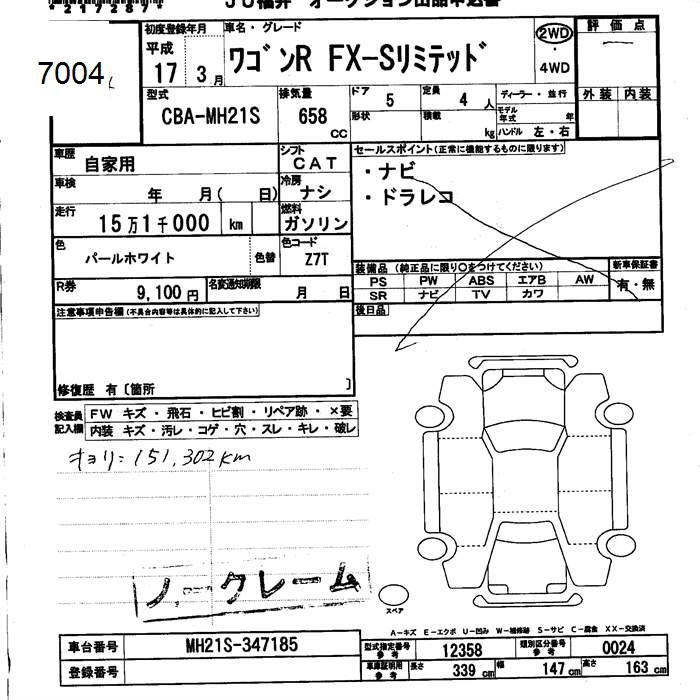 *2172877
JU福井 オークション出品申込書
7004
初度登録年月 車名・グレード 2WD 評価点
平成 17 3月 ワゴンR FX-Sリミテッド ・ 4WD
型式 排気量 ドア 5 定員 4 人 ディーラー・並行 外装 内装
CBA-MH21S 658 CC 形状 積載 kg モデル年式 年
ハンドル 左・右
車歴 自家用 シフト CAT セールスポイント(正常に機能するものに限ります)
車検 年 月( 日) 冷房 ナシ ・ナビ
走行 15万1千000 km 燃料 ガソリン ・ドラレコ
色 パールホワイト 色替 色コード Z7T
装備品(純正品に限り○をつけてください) 新車保証書
R券 9,100円 名変通知期限 月 日 PS PW ABS エアB AW 有・無
SR ナビ TV カワ
注意事項申告欄(不具合内容等は具体的に記入して下さい) 後日品
修復歴 有〔箇所 〕
検査員記入欄 FW キズ・飛石・ヒビ割・リペア跡・×要
内装 キズ・汚レ・コゲ・穴・スレ・キレ・破レ
キョリ:151,302km
ノークレーム
スペア
A-キズ E-エクボ U-凹み W-補修跡 S-サビ C-腐食 XX-交換済
車台番号 MH21S-347185 型式指定番号 参考 12358 類別区分番号 参考 0024
登録番号 車庫証明用 参考 長さ 339 cm 幅 147 cm 高さ 163 cm